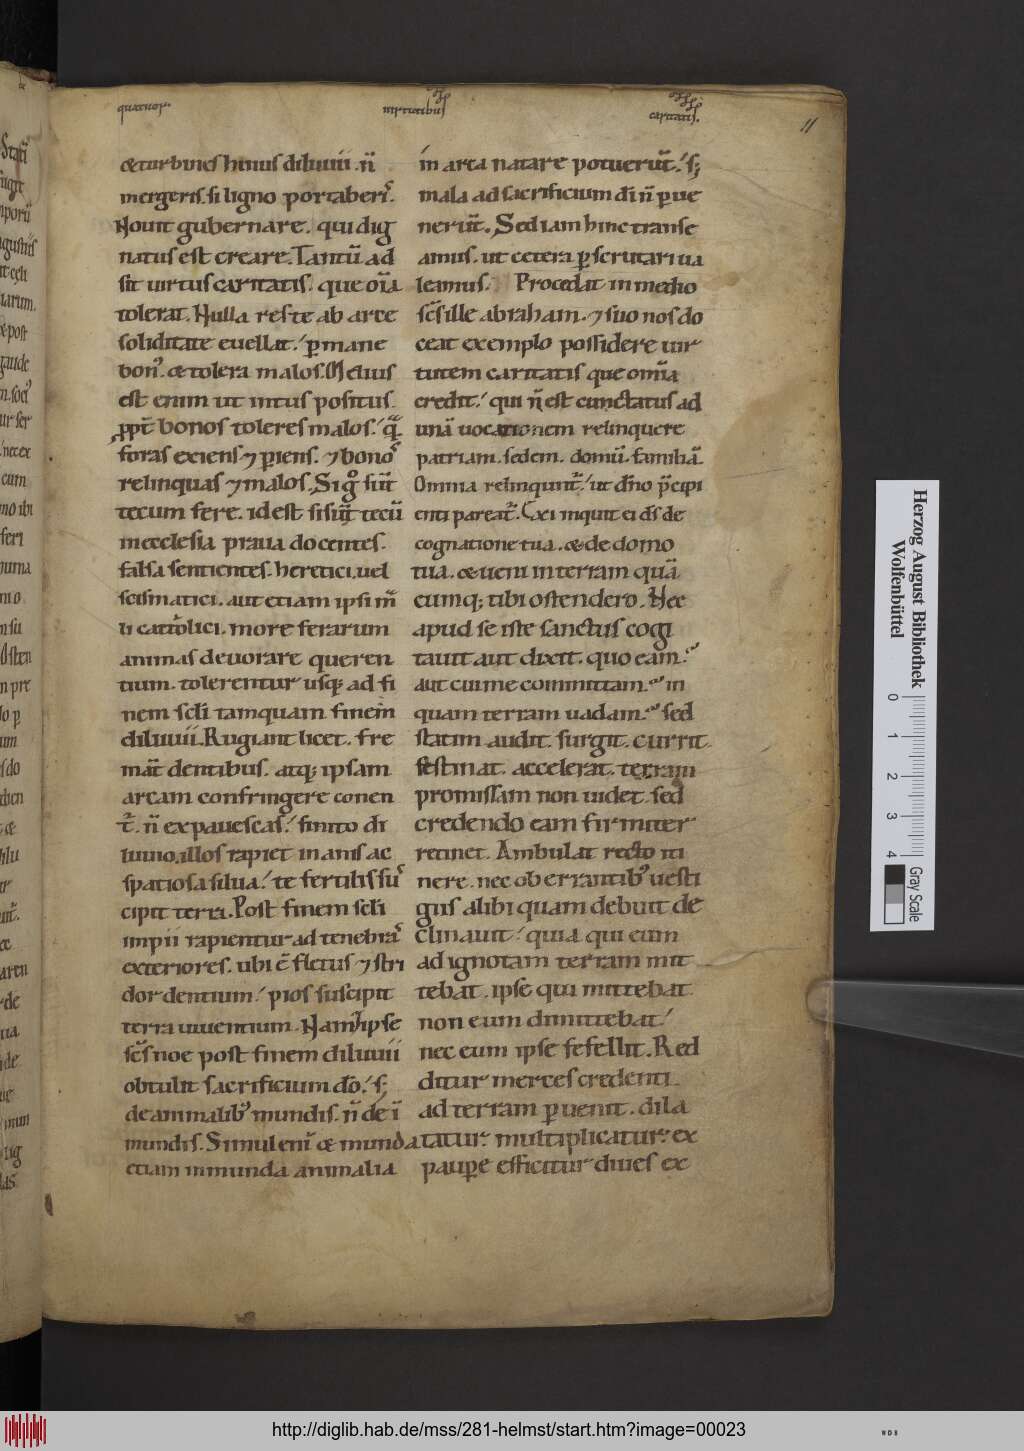 quatuor.
uirtutibus
caritatis.
11
&turbines huius diluuii. n̄
mergeris. si ligno portaberis̄.
Nouit gubernare. qui dig
natus est creare. Tantū ad
sit uirtus caritatis. que om̄a
tolerat. Nulla res te ab arce
soliditate euellat. ꝑmane
bon᾽. & tolera malos. Melius
est enim ut intus positus
ꝓpt̄ bonos toleres malos. q̄
foras exiens ⁊ ꝑiens. ⁊ bonos
relinquas ⁊ malos. Si gͦ sūt
tecum fere. id est si sūt tecū
in ecclesia praua docentes.
falsa sentientes. heretici. uel
scismatici. aut etiam ipsi m̄
li catholici. more ferarum
animas deuorare queren
tium. tolerentur usq; ad fi
nem scli tamquam finem
diluuii. Rugiant licet. fre
māt dentibus. atq; ipsam
arcam confringere conen
t̄. n̄ expauescas. finito di
luuio. illos rapiet inanis ac
spatiosa silua. te fertilis su᾽
cipit terra. Post finem scli
impii rapientur ad tenebras
exteriores. ubi ē fletus ⁊ stri
dor dentium. pios suscipit
terra uiuentium. Nam ipse
sc̄s noe post finem diluuii
obtulit sacrificium dō. s;
de animalib᾽ mundis. n̄ de ī
mundis. Simul enī & munda
etiam inmunda animalia
in arca natare potuerūt. s;
mala ad sacrificium di n̄ ꝑue
nerūt. Sed iam hinc transe
amus. ut cetera ꝑscrutari ua
leamus. Procedat in medio
sc̄s ille abraham. ⁊ suo nos do
ceat exemplo possidere uir
tutem caritatis que omīa
credit. qui n̄ est cunctatus ad
unā uocationem relinquere
patriam. sedem. domū. familiā.
Omnia relinqunt̄. ut dn̄o p̄cipi
enti pareat̄. Exi inquit ei ds̄ de
cognatione tua. & de domo
tua. & ueni in terram quā
cumq; tibi ostendero. Nec
apud se iste sanctus cogi
tauit aut dixit. quo eam.
aut cui me committam. in
quam terram uadam. sed
statim audit. surgit. currit.
festinat. accelerat. terram
promissam non uidet. sed
credendo eam firmiter
retinet. Ambulat recto iti
nere. nec ob errantib᾽ uesti
giis alibi quam debuit de
clinauit. quia qui eum
ad ignotam terram mit
tebat. ipse qui mittebat
non eum dimittebat.
nec eum ipse fefellit. Red
ditur merces credenti
ad terram ꝑuenit. dila
tatur. multiplicatur. ex
pauꝑe efficitur diues ex
Herzog August Bibliothek
Wolfenbüttel
0
1
2
3
4
Gray Scale
http://diglib.hab.de/mss/281-helmst/start.htm?image=00023